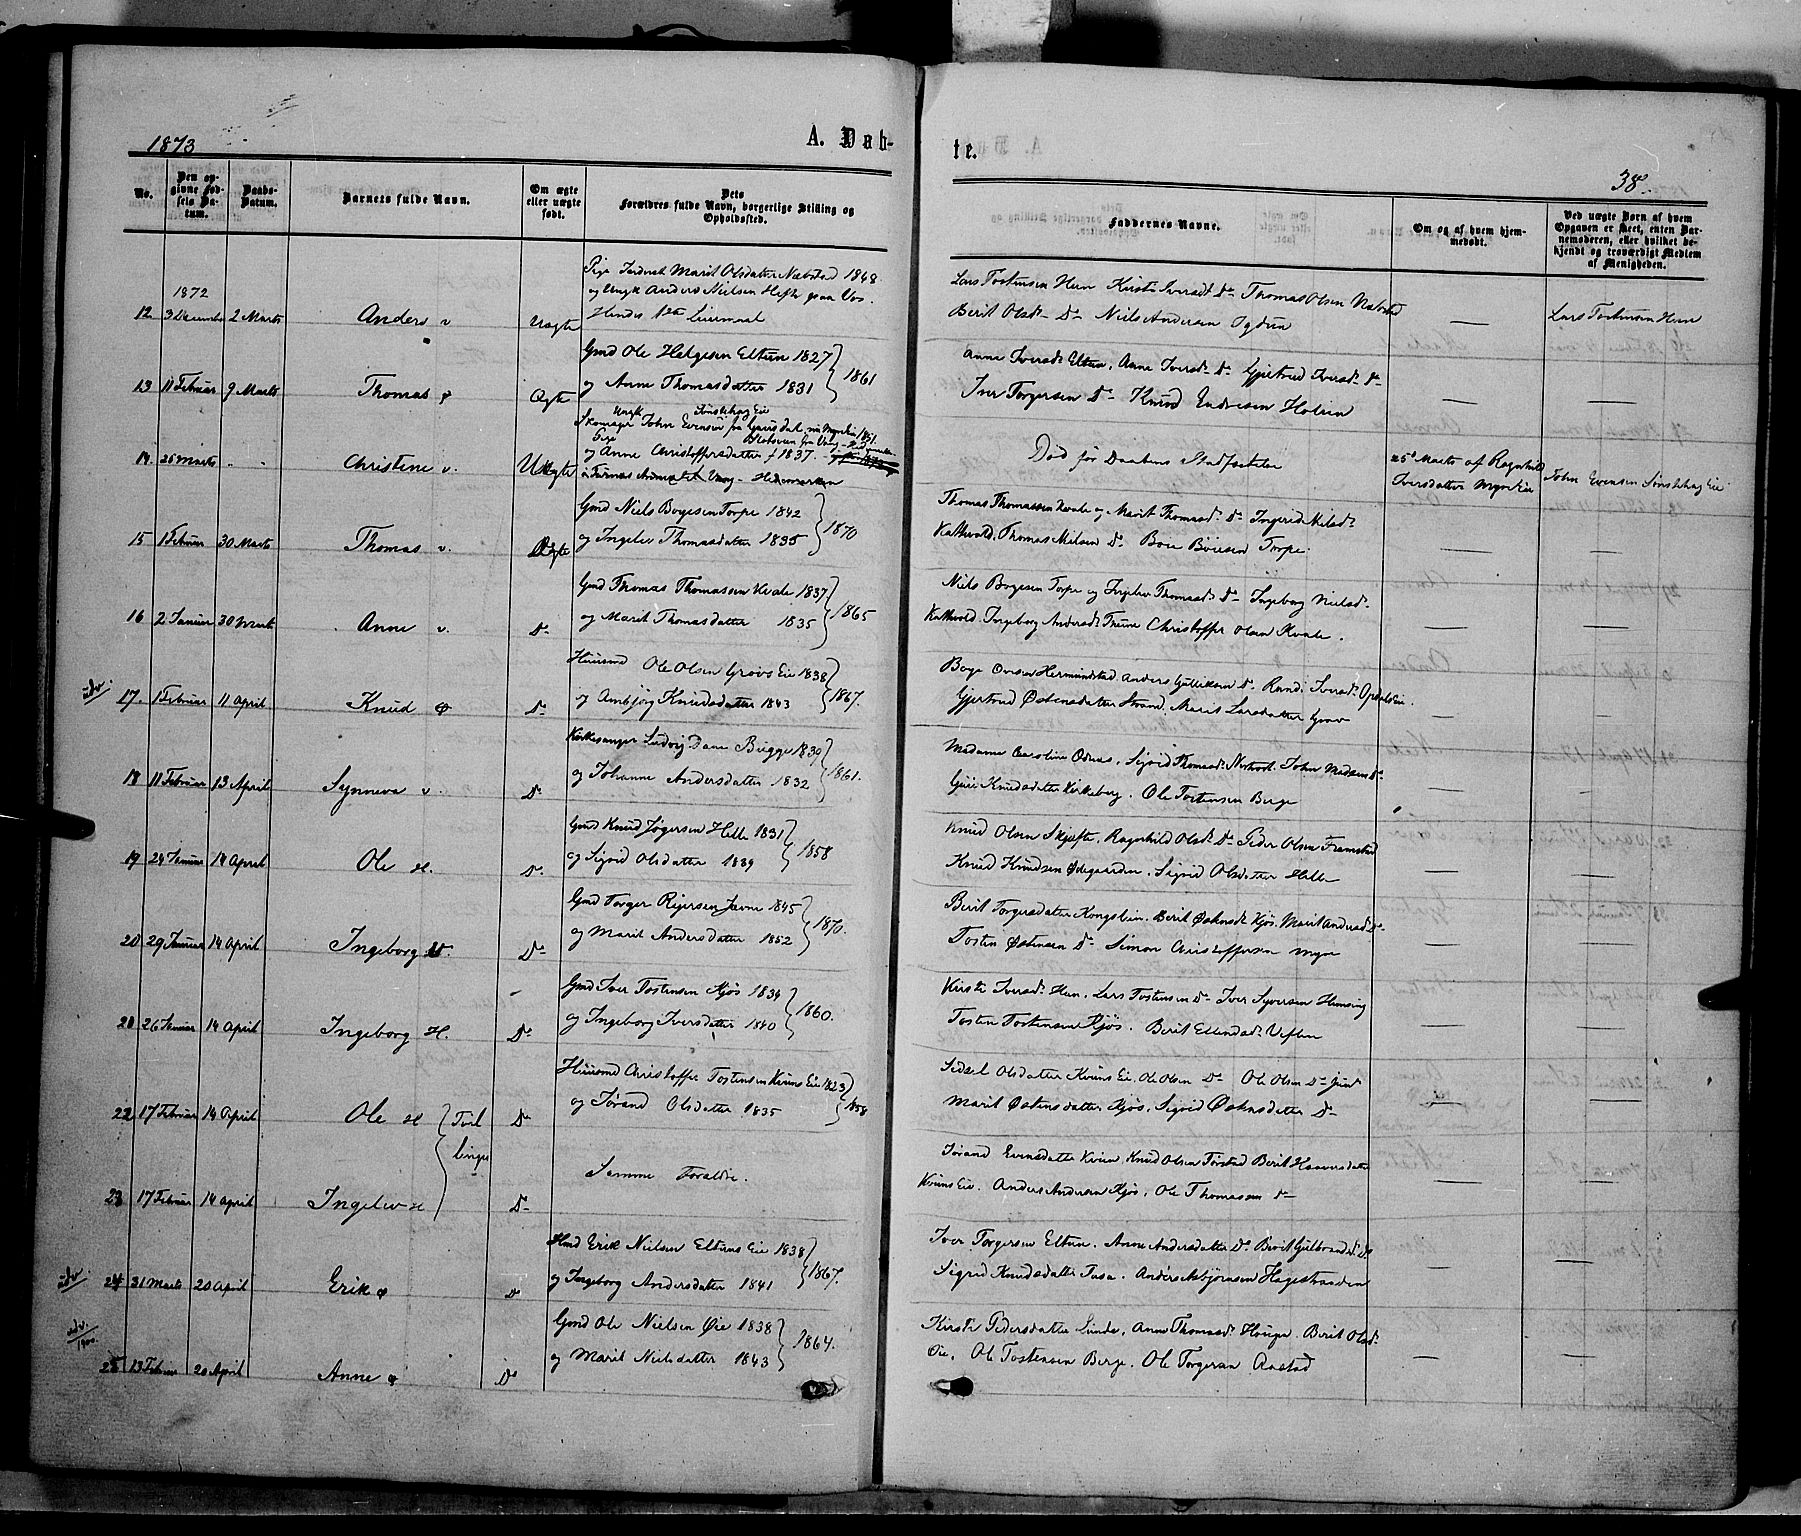 1873
A. Døb-
te.
38.
No.
Den op-
givne Fød-
sels Da-
tum.
Daabs-
Datum.
Barnets fulde Navn.
Om ægte
eller uægte
født.
Dets
Forældres fulde Navn, borgerlige Stilling og
Opholdssted.
Faddernes Navne.
Om og af hvem hjem-
medøbt.
Ved uægte Børn af hvem
Opgaven er skeet, enten Bar-
nemoderen, eller hvilket be-
kjendt og troværdigt Medlem
af Menigheden.
1872
12 3 December 2 Marts Anders v Uægte
Pige Marit Olsdatter Næbstad 1848
og Ungk Anders Nielsen Hefte paa Vos.
Hendes 1ste Leiermaal
Lars Tostensen Hem Kirsti Iversdt Do Thomas Olsen Næbstad
Berit Olsdt Do Niels Andersen — Lars Tostensen Hem
13 11 Februar 9 Marts Thomas Ægte
Gmd Ole Helgesen Eltun 1827
og Anne Thomasdatter 1831 1861
Anne Iversdt Eltun, Anne Iversdt Do Gjertrud Iversdt Do
Iver Torgersen Do Knud Endresen Holien — —
14. 25 Marts " " Christene v. Uægte
Ungk
Skomager John Evensen fra Gausdal
Pige
og Anne Christoffersdatter f 1837
Død før Daabens Stadfæstelse
25de Marts af Ragnhild
Iversdatter
John Evensen
15 1 Februar 30 Marts Thomas v. Ægte
Gmd Niels Bogesen Torpe 1842
og Ingelev Thomasdatter 1835 1870
Thomas Thomassen Kvale og Marit Thomasdt Do Ingerid Nielsdt
Kattevold, Thomas Nielsen Do Boie Böiesen Torpe. — —
16 2 Januar 30 Marts Anne v. Do
Gmd Thomas Thomassen Kvale 1837
og Marit Thomasdatter 1835 1865
Niels Bogesen Torpe og Ingelev Thomasdt Do Ingeborg Nielsdt
Kattevold. Ingeborg Andersdt Christoffer Olsen Kvale. — —
udv.
17. 1 Februar 11 April Knud Do
Huusmd Ole Olsen Grøvs Eie 1838
og Ambjør Knudsdatter 1843 1867.
Boge Ovesen Hermundstad Anders Gulliksen Do Randi Iversdt Opdals Eie
Gjertrud Østensdatter Strand, Marit Larsdatter Grøv — —
18 11 Februar 13 April Synneva v. Do
Kirkesanger Ludvig Dane Brügge 1830
og Johanne Andersdatter 1832 1861.
Madame Caroline Odnæs, Sigrid Thomasdt John Madsen Do
Guri Knudsdatter Kirkeberg. Ole Tostensen Berge — —
19 24 Januar 14 April Ole H. Do
Gmd Knud Jøgersen Helle 1831
og Sigrid Olsdatter 1839 1858
Knud Olsen Skjefte, Ragnhild Olsdt Do Peder Olsen Framstad
Knud Knudsen Ødegaarden, Sigrid Olsdatter Helle — —
20 29 Januar 14 April Ingeborg Do
Gmd Torger Reiersen Jævne 1845
og Marit Andersdatter 1852 1870.
Berit Torgersdatter Kongslien. Berit Østensdt Kjøs. Marit Andersdt Do
Tosten Østensen Do Simon Christoffersen Myre — —
21 26 Januar 14 April Ingeborg H. Do
Gmd Iver Tostensen Kjøs 1834
og Ingeborg Iversdatter 1840 1860.
Kirsti Iversdt Hem, Lars Tostensen Do Iver Syversen Hemsing
Tosten Tostensen Kjøs. Berit Ellendsdt Veflen — —
22 17 Februar 14 April Ole H Do
Tvil-
linger
Huusmd Christoffer Tostensen Kviens Eie 1823
og Jørand Olsdatter 1835 1858
Sidsel Olsdatter Kviens Eie, Ole Olsen Do Ole Olsen Do
Marit Østensdatter Kjøs, Sigrid Østensdatter Do — —
23 17 Februar 14 April Ingelev H Do
Samme Forældre.
Jørand Evensdatter Kvien, Knud Olsen Torstad Berit Haavarsdatter
Kviens Eie. Anders Andersen Kjøs, Ole Thomassen Do — —
udv.
24 31 Marts 20 April Erik Do
Hmd Erik Nielsen Eltuns Eie 1838
og Ingeborg Andersdatter 1841 1867.
Iver Torgersen Eltun. Anne Andersdatter Do Berit Gulbrandsdt Do
Sigrid Knudsdatter Tasa. Anders Asbjørnsen Hagestranden — —
udv.
1900.
25 13 Februar 20 April Anne Do
Gmd Ole Nielsen Øie 1838
og Marit Nielsdatter 1843 1864.
Kirsti Pedersdatter Linde, Anne Thomasdt Hauge. Berit Olsdt
Øie. Ole Tostensen Berge. Ole Torgersen Aastad — —